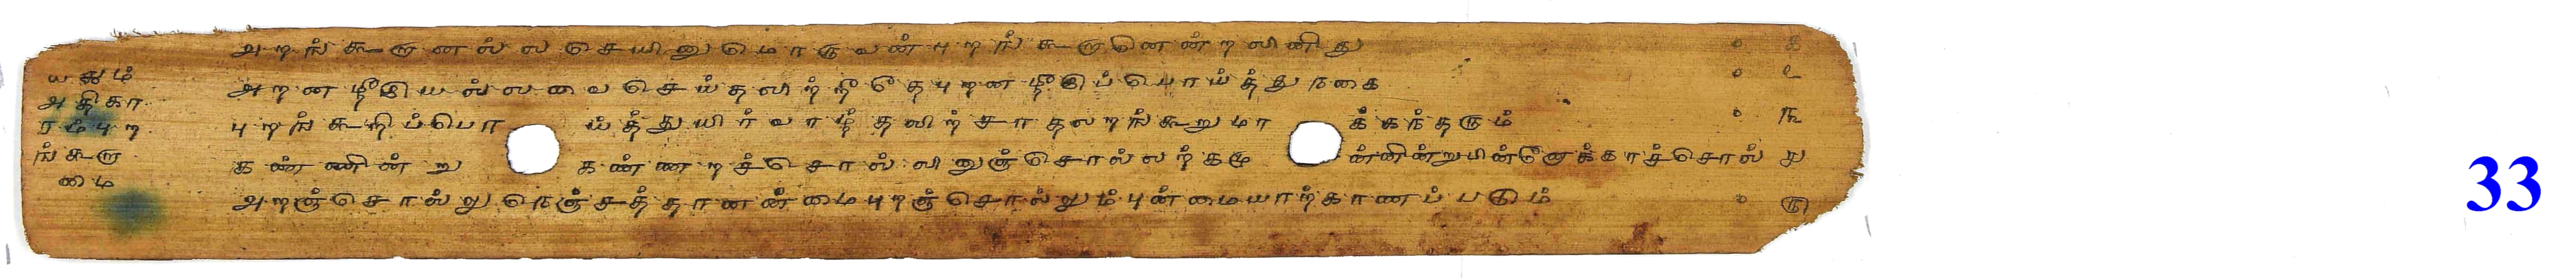 ௰௯ம்
அதிகா
ரம்புற
ங்கூறா
மை
அறங்கூறானல்லசெயினுமொருவன்புறங்கூறானென்றலினிது ௦ ௧
அறனழீஇயல்லவைசெய்தலிற்றீதேபுறனழீஇப்பொய்த்துநகை ௦ ௨
புறங்கூறிப்பொய்த்துயிர்வாழ்தலிற்சாதலறங்கூறுமாக்கந்தரும் ௦ ௩
கண்ணின்றுகண்ணறச்சொல்லினுஞ்சொல்லற்கமுன்னின்றுபின்னோக்காச்சொல் ௪
அறஞ்சொல்லுநெஞ்சத்தானன்மைபுறஞ்சொல்லும்புன்மையாற்காணப்படும் ௦ ௫
33